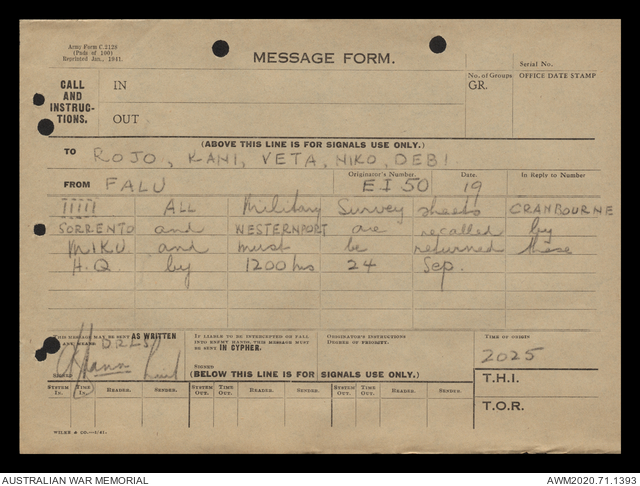 Army Form C.2129
(Pads of 100)
Reprinted Jan., 1941.
MESSAGE FORM.
Serial No.
CALL AND INSTRUC-TIONS.
IN
OUT
No. of Groups
GR.
OFFICE DATE STAMP
(ABOVE THIS LINE IS FOR SIGNALS USE ONLY.)
TO ROJO, KANI, VETA, NIKO, DEBI
FROM FALU
Originator's Number. EI 50
Date. 19
In Reply to Number
IIIII ALL Military Survey sheets CRANBOURNE
SORRENTO and WESTERNPORT are recalled by
MIKU and must be returned these
H.Q by 1200 hrs 24 Sep.
THIS MESSAGE MAY BE SENT AS WRITTEN
BY ANY MEANS DRLS
SIGNED
IF LIABLE TO BE INTERCEPTED OR FALL
INTO ENEMY HANDS, THIS MESSAGE MUST
BE SENT IN CYPHER.
SIGNED
ORIGINATOR'S INSTRUCTIONS
DEGREE OF PRIORITY.
TIME OF ORIGIN
2025
(BELOW THIS LINE IS FOR SIGNALS USE ONLY.)
T.H.I.
T.O.R.
SYSTEM IN. TIME IN. READER. SENDER. SYSTEM OUT. TIME OUT. READER. SENDER. SYSTEM OUT. TIME OUT. READER. SENDER.
WILKE & CO.—1/41.
AUSTRALIAN WAR MEMORIAL
AWM2020.71.1393